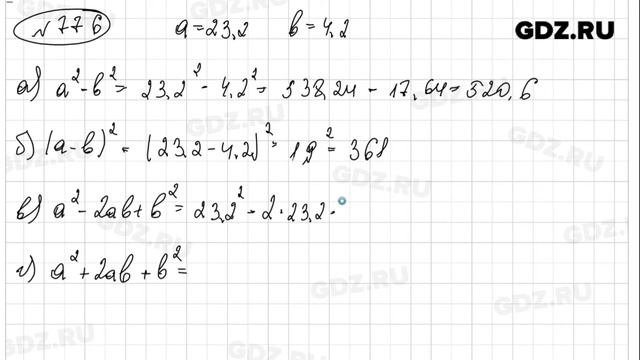 №776 a=23,2 b=4,2 GDZ.RU
а) a²-b² = 23,2² - 4,2² = 538,24 - 17,64 = 520,6
б) (a-b)² = (23,2-4,2)² = 19² = 361
в) a² - 2ab + b² = 23,2² - 2·23,2·
г) a² + 2ab + b² =